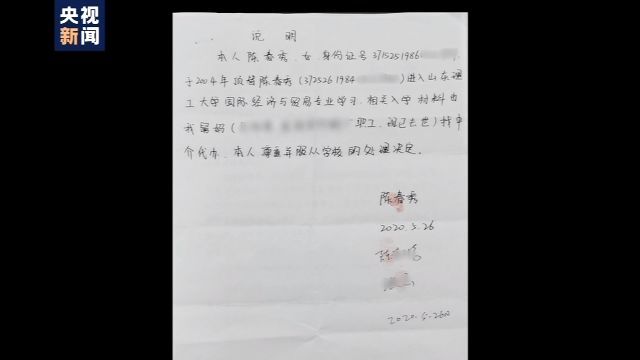 央视
新闻
说 明
本人陈春秀,女,身份证号3715251986
于2004年顶替陈春秀(3725261984)进入山东理
工大学国际经济与贸易专业学习,相关入学材料由
我舅妈(职工,现已去世)找中
介代办,本人尊重并服从学校的处理决定。
陈春秀
2020.5.26
2020.5.26日